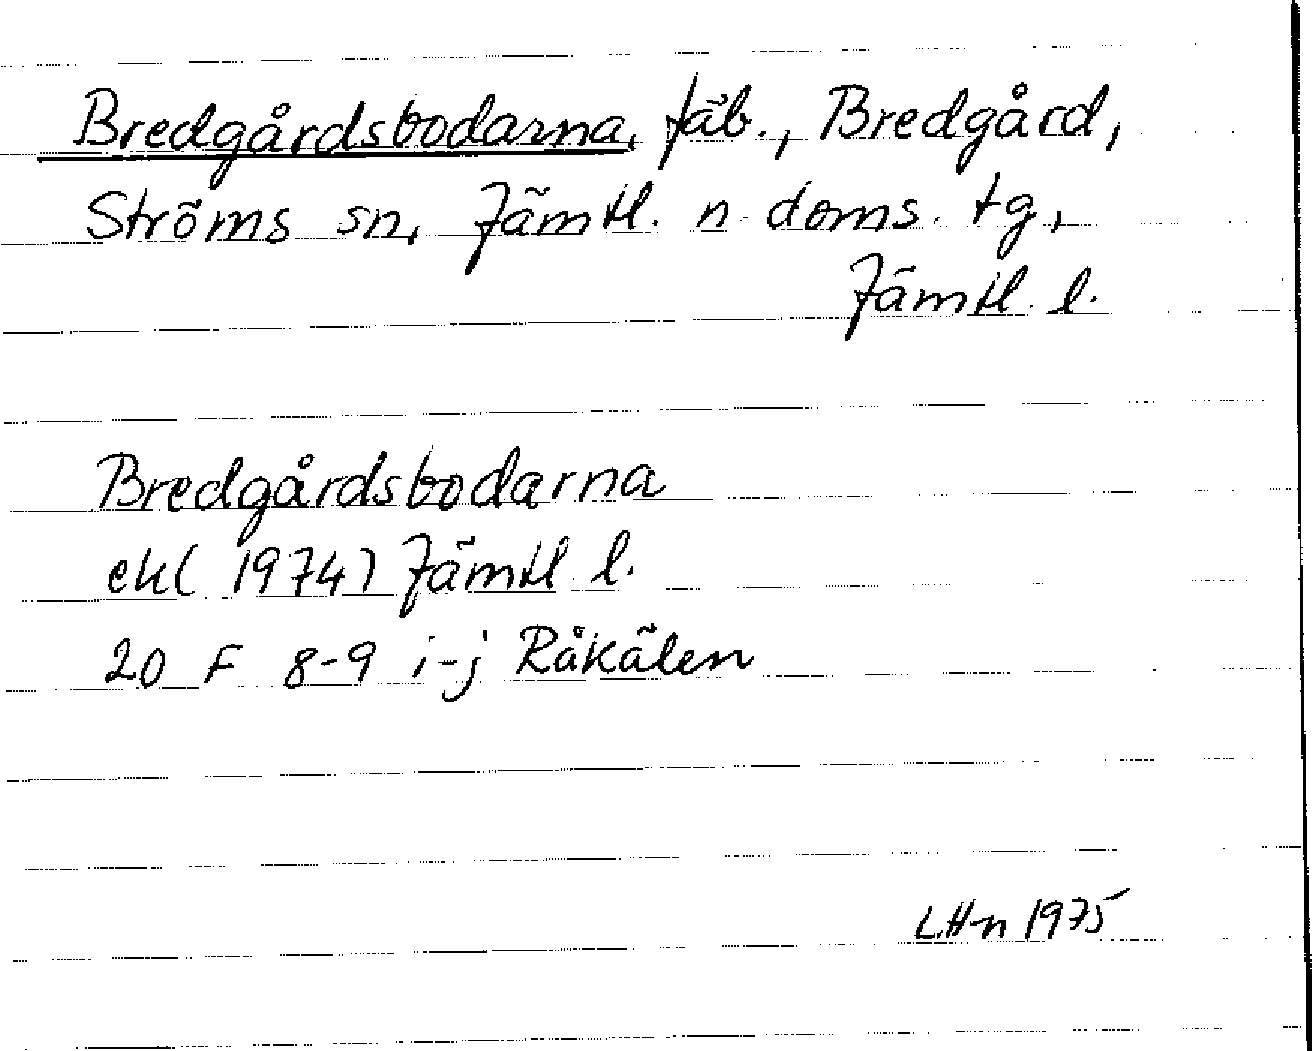 Bredgårdsbodarna, fäb., Bredgård,
Ströms sn, Jämtl. n. doms. tg,
Jämtl. l.
Bredgårdsbodarna
ek( 1974) Jämtl l.
20 F 8-9 i-j Råkälen
LH-n 1975